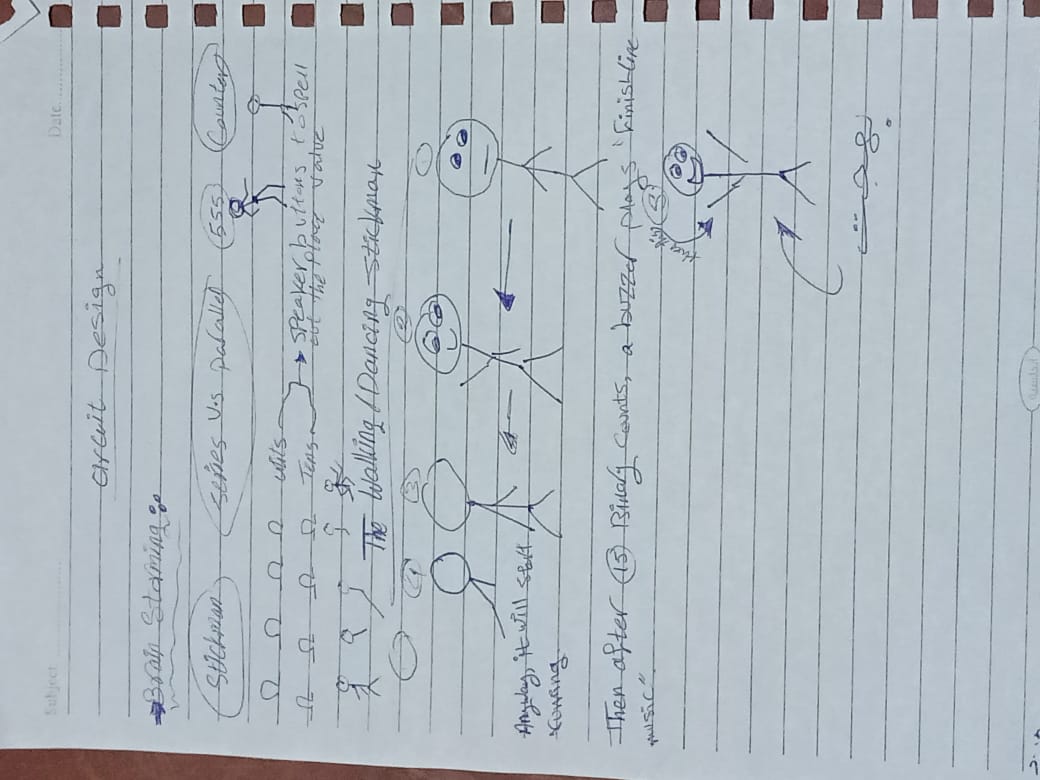 Subject
Date
Circuit Design
Brain Storming:
Stickman series V.s Parallel 555 Counter
units
Tens
speaker, buttons to spell
out the Place value
The Walking / Dancing Stickman
4 3 2 1
Anyway, it will start
running.
Then after 15 Binary Counts, a buzzer plays "Finish line
music".
5